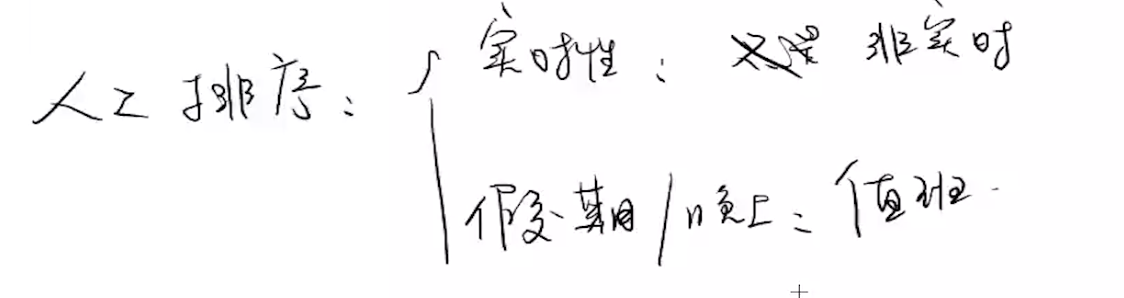 人工排序：
实时性：非实时
假期/晚上：值班